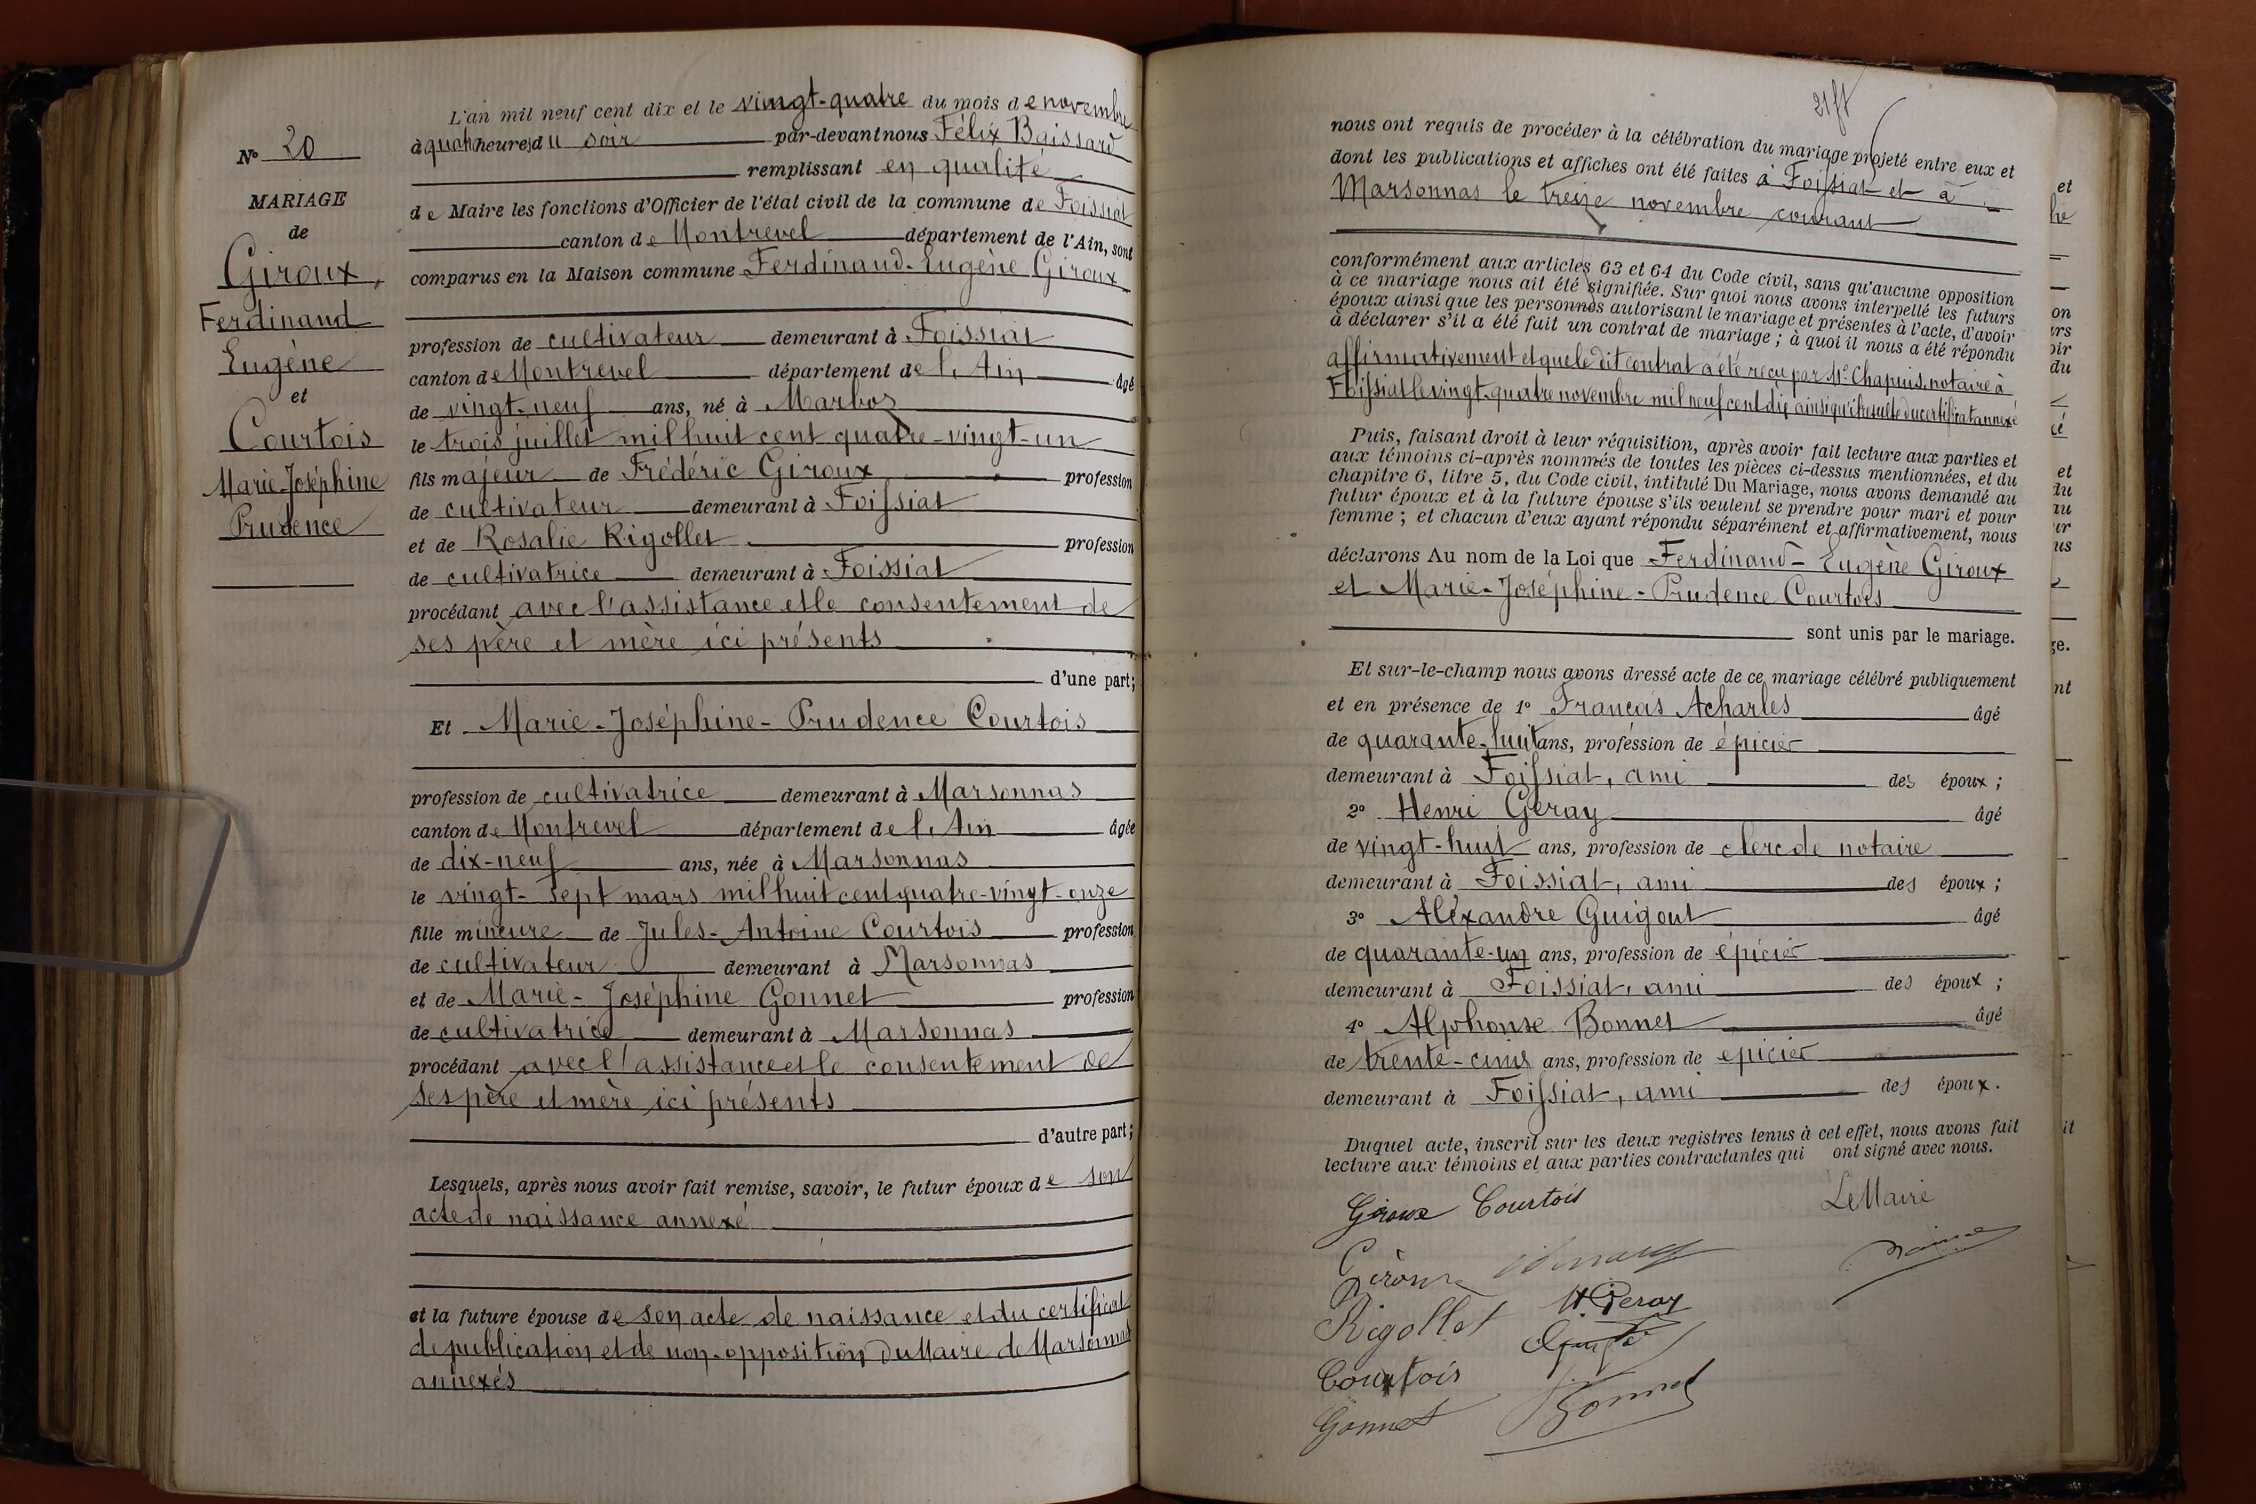 N° 20
MARIAGE
de
Giroux,
Ferdinand
Eugène
et
Courtois
Marie-Joséphine
Prudence
L'an mil neuf cent dix et le vingt-quatre du mois de novembre
à quatre heures du soir par-devant nous Félix Baissard
remplissant en qualité
de Maire les fonctions d'Officier de l'état civil de la commune de Foissiat
canton de Montrevel département de l'Ain, sont
comparus en la Maison commune Ferdinand-Eugène Giroux
profession de cultivateur demeurant à Foissiat
canton de Montrevel département de l'Ain âgé
de vingt-neuf ans, né à Marboz
le trois juillet mil huit cent quatre-vingt-un
fils majeur de Frédéric Giroux profession
de cultivateur demeurant à Foissiat
et de Rosalie Rigollet profession
de cultivatrice demeurant à Foissiat
procédant avec l'assistance et le consentement de
ses père et mère ici présents
d'une part;
Et Marie-Joséphine-Prudence Courtois
profession de cultivatrice demeurant à Marsonnas
canton de Montrevel département de l'Ain âgée
de dix-neuf ans, née à Marsonnas
le vingt-sept mars mil huit cent quatre-vingt-onze
fille mineure de Jules-Antoine Courtois profession
de cultivateur demeurant à Marsonnas
et de Marie-Joséphine Gonnet profession
de cultivatrice demeurant à Marsonnas
procédant avec l'assistance et le consentement de
ses père et mère ici présents
d'autre part;
Lesquels, après nous avoir fait remise, savoir, le futur époux de son
acte de naissance annexé
et la future épouse de son acte de naissance et du certificat
de publication et de non-opposition du Maire de Marsonnas
annexés
nous ont requis de procéder à la célébration du mariage projeté entre eux et
dont les publications et affiches ont été faites à Foissiat et à
Marsonnas le treize novembre courant
conformément aux articles 63 et 64 du Code civil, sans qu'aucune opposition
à ce mariage nous ait été signifiée. Sur quoi nous avons interpellé les futurs
époux ainsi que les personnes autorisant le mariage et présentes à l'acte, d'avoir
à déclarer s'il a été fait un contrat de mariage; à quoi il nous a été répondu
affirmativement et que le dit contrat a été reçu par Me Chapuis, notaire à
Foissiat le vingt-quatre novembre mil neuf cent dix ainsi qu'il résulte du certificat annexé
Puis, faisant droit à leur réquisition, après avoir fait lecture aux parties et
aux témoins ci-après nommés de toutes les pièces ci-dessus mentionnées, et du
chapitre 6, titre 5, du Code civil, intitulé Du Mariage, nous avons demandé au
futur époux et à la future épouse s'ils veulent se prendre pour mari et pour
femme; et chacun d'eux ayant répondu séparément et affirmativement, nous
déclarons Au nom de la Loi que Ferdinand-Eugène Giroux
et Marie-Joséphine-Prudence Courtois
sont unis par le mariage.
Et sur-le-champ nous avons dressé acte de ce mariage célébré publiquement
et en présence de 1° François Acharles âgé
de quarante-huit ans, profession de épicier
demeurant à Foissiat, ami des époux;
2° Henri Geray âgé
de vingt-huit ans, profession de clerc de notaire
demeurant à Foissiat, ami des époux;
3° Aléxandre Guigout âgé
de quarante-un ans, profession de épicier
demeurant à Foissiat, ami des époux;
4° Alphonse Bonnet âgé
de trente-cinq ans, profession de epicier
demeurant à Foissiat, ami des époux.
Duquel acte, inscrit sur les deux registres tenus à cet effet, nous avons fait
lecture aux témoins et aux parties contractantes qui ont signé avec nous.
Giroux Courtois Le Maire
Giroux
Rigollet H. Geray
Courtois
Gonnet Bonnet